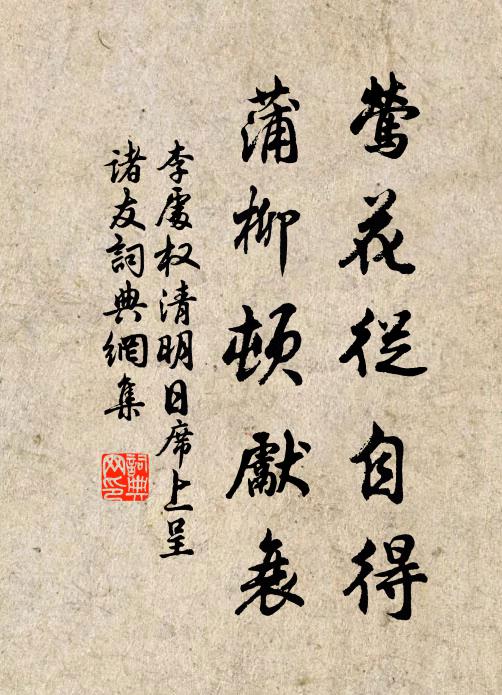 鶯花從自得
蒲柳頓獻衰
李處权清明日席上呈
诸友詞典網集
詞典网印